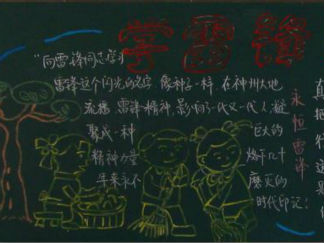 学雷锋
"向雷锋同志学习"
雷锋这个闪光的名字,像种子一样,在神州大地
流播,雷锋精神,影响了一代又一代人,凝
聚成一种
精神力量
年来永不
巨大的
烁几十
磨灭的
时代印记!
永恒雷锋
真
把
特
这
是